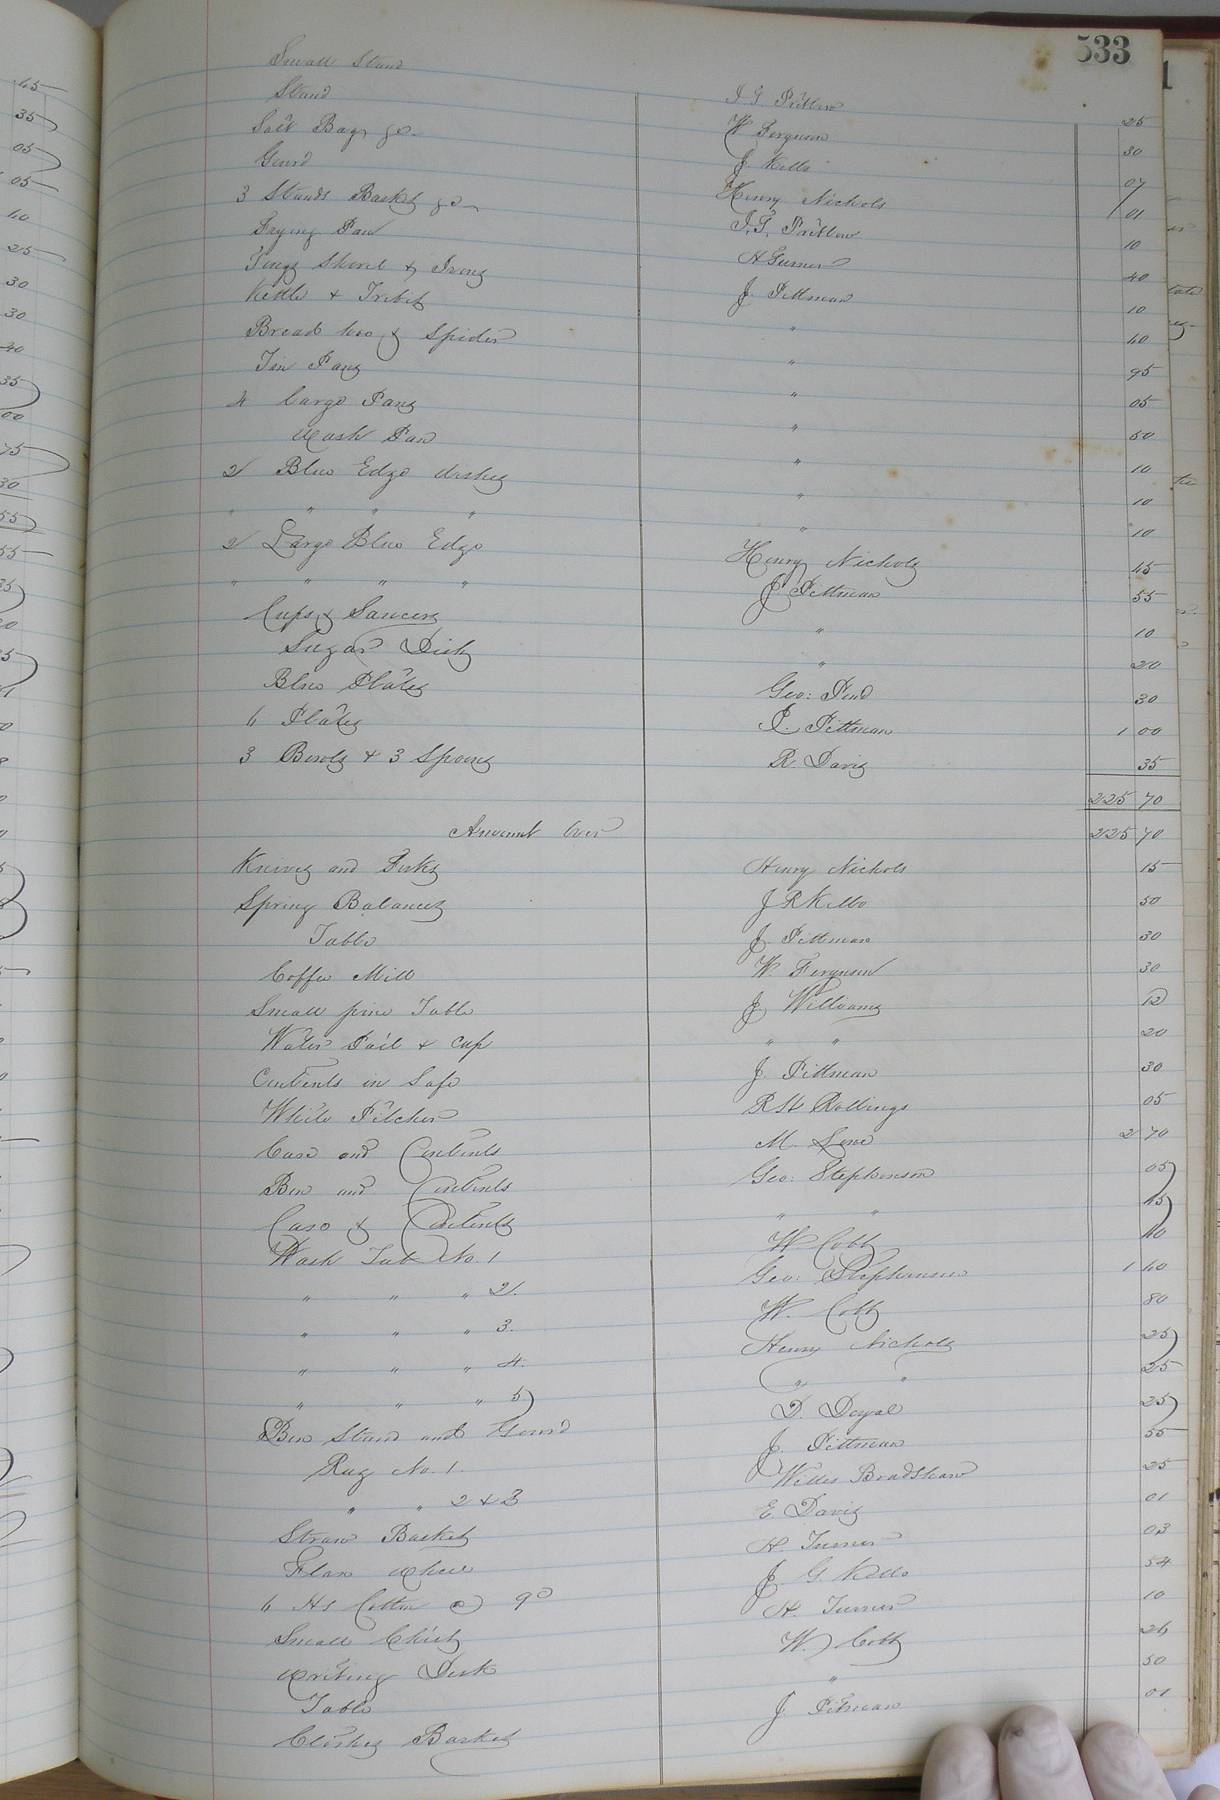 533
Small Stand
Stand J G Pretlow 25
Salt Bag &c W Ferguson 30
Gourd J. Kello 07
3 Stands Basket &c Henry Nichols 01
Frying Pan J. G. Pretlow 10
Tongs Shovel & Irons H Turner 40
Kettle & Trivet J. Pittman 10
Bread hoo & Spider " 40
Tin Pans " 95
4 Large Pans " 05
Wash Pan " 50
2 Blue Edge dishes " 10
" " " " " 10
2 Large Blue Edge " 10
" " " " Henry Nichols 45
Cups & Saucers J. Pittman 55
Sugar Dish " 10
Blue Plates " 20
6 Plates Geo: 30
3 Bowls & 3 Spoons P. Pittman 1 00
R. Davis 35
225 70
Amount Over 225 70
Knives and Forks Henry Nichols 15
Spring Balances J R Kello 50
Table J. Pittman 30
Coffee Mill W. Ferguson 30
Small pine Table J. Williams 12
Water Pail & Cup " " 20
Contents in Safe J. Pittman 30
White Pitcher R H Rollings 05
Case and Contents M. 2 70
Box and Contents Geo: Stephenson 05
Case & Contents " " 45
Wash Tub No. 1 W Cobb 40
" " " 2. Geo: Stephenson 1 40
" " " 3. W. Cobb 80
" " " 4. Henry Nichols 25
" " " 5 " " 25
Box Stand and Gourd D. Doyal 25
Rug No. 1. J. Pittman 55
" " 2 & 3 Willis Bradshaw 25
Straw Basket E Davis 01
Flax Wheel H. Turner 03
6 lbs Cotton @ 9c J. G. Kello 54
Small Chest H. Turner 10
Writing Desk W. Cobb 26
Table " 50
Clothes Basket J Pitman 01